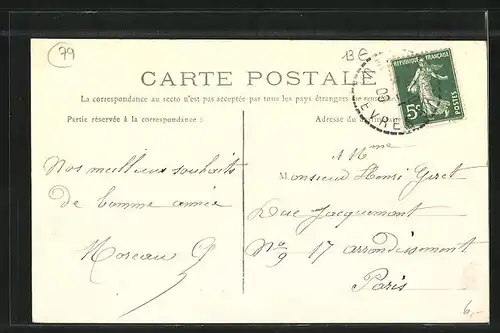 79
13 €
RÉPUBLIQUE FRANÇAISE
5c
POSTES
09
EVRES
CARTE POSTALE
La correspondance au recto n'est pas acceptée par tous les pays étrangers
Partie réservée à la correspondance :
Adresse du
Nos meilleurs souhaits
de bonne année
Moreau G
A Mme
Monsieur Henri Geret
Rue Jacquemont
No 9 17 arrondissement
Paris
6,-